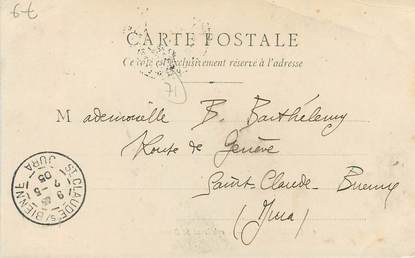 6-€
CARTE POSTALE
Ce côté est exclusivement réservé à l'adresse
71
Mademoiselle B. Barthélemy
Route de Genève
Saint-Claude-
(Jura)
ST CLAUDE S/ BIENNE
9-5
05
JURA